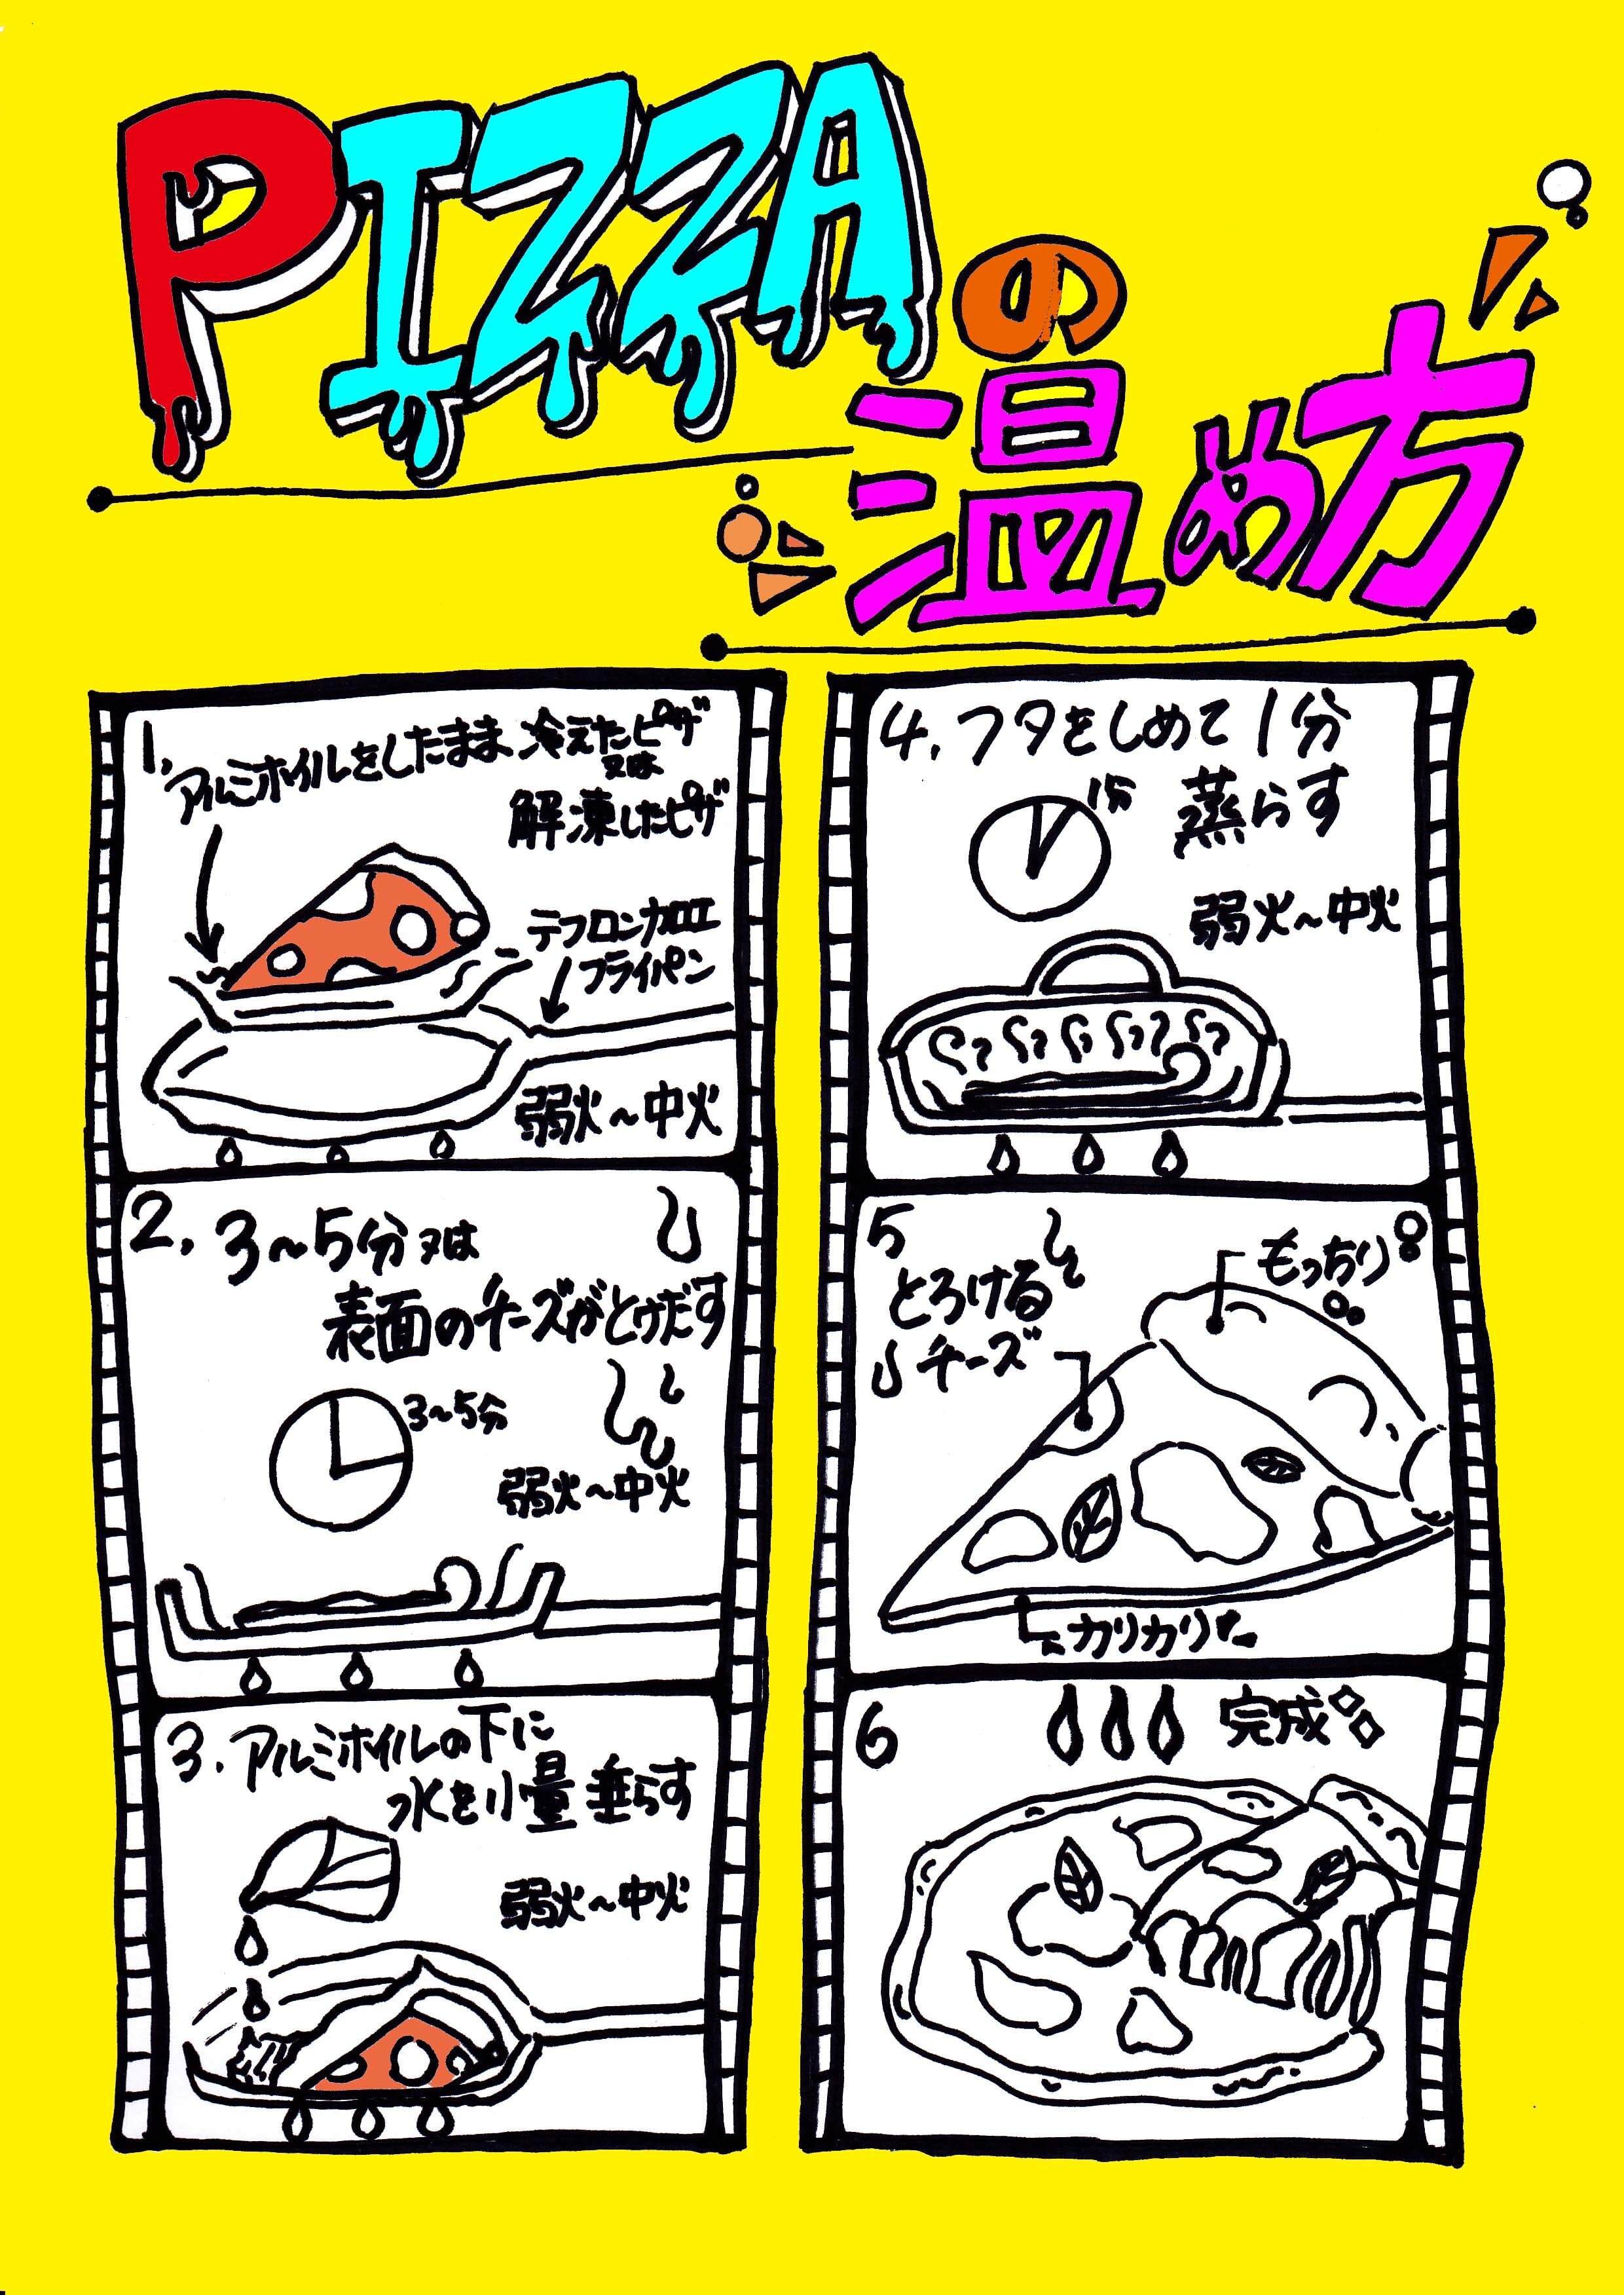 PIZZAの
温め方
1.
アルミホイルをしたまま
冷えたピザ
又は
解凍したピザ
テフロン加工
フライパン
弱火～中火
2. 3～5分又は
表面のチーズがとけだす
3～5分
弱火～中火
3. アルミホイルの下に
水を小量垂らす
弱火～中火
4. フタをしめて1分
蒸らす
1分
弱火～中火
5
とろける
チーズ
もっちり
カリカリ
6
完成